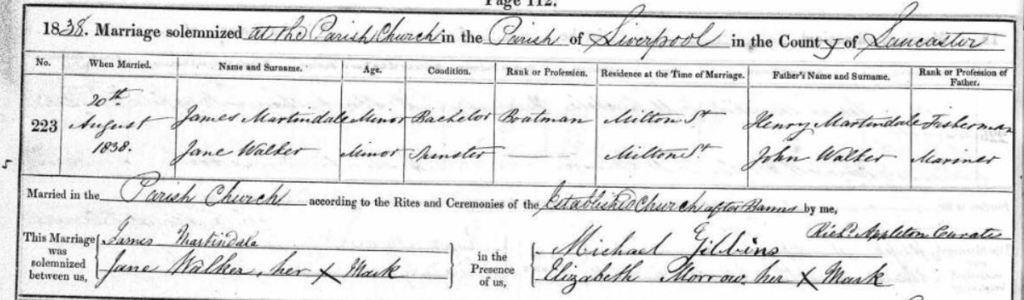 Page 112.
1838. Marriage solemnized at the Parish Church in the Parish of Liverpool in the County of Lancaster
No. When Married. Name and Surname. Age. Condition. Rank or Profession. Residence at the Time of Marriage. Father's Name and Surname. Rank or Profession of Father.
223 20th August 1838. James Martindale Minor Bachelor Boatman Milton St Henry Martindale Fisherman
Jane Walker Minor Spinster Milton St. John Walker Mariner
Married in the Parish Church according to the Rites and Ceremonies of the Established Church after Banns by me,
Richd. Appleton Curate
This Marriage was solemnized between us,
James Martindale
Jane Walker, her X Mark
in the Presence of us,
Michael Gibbins
Elizabeth Morrow, her X Mark